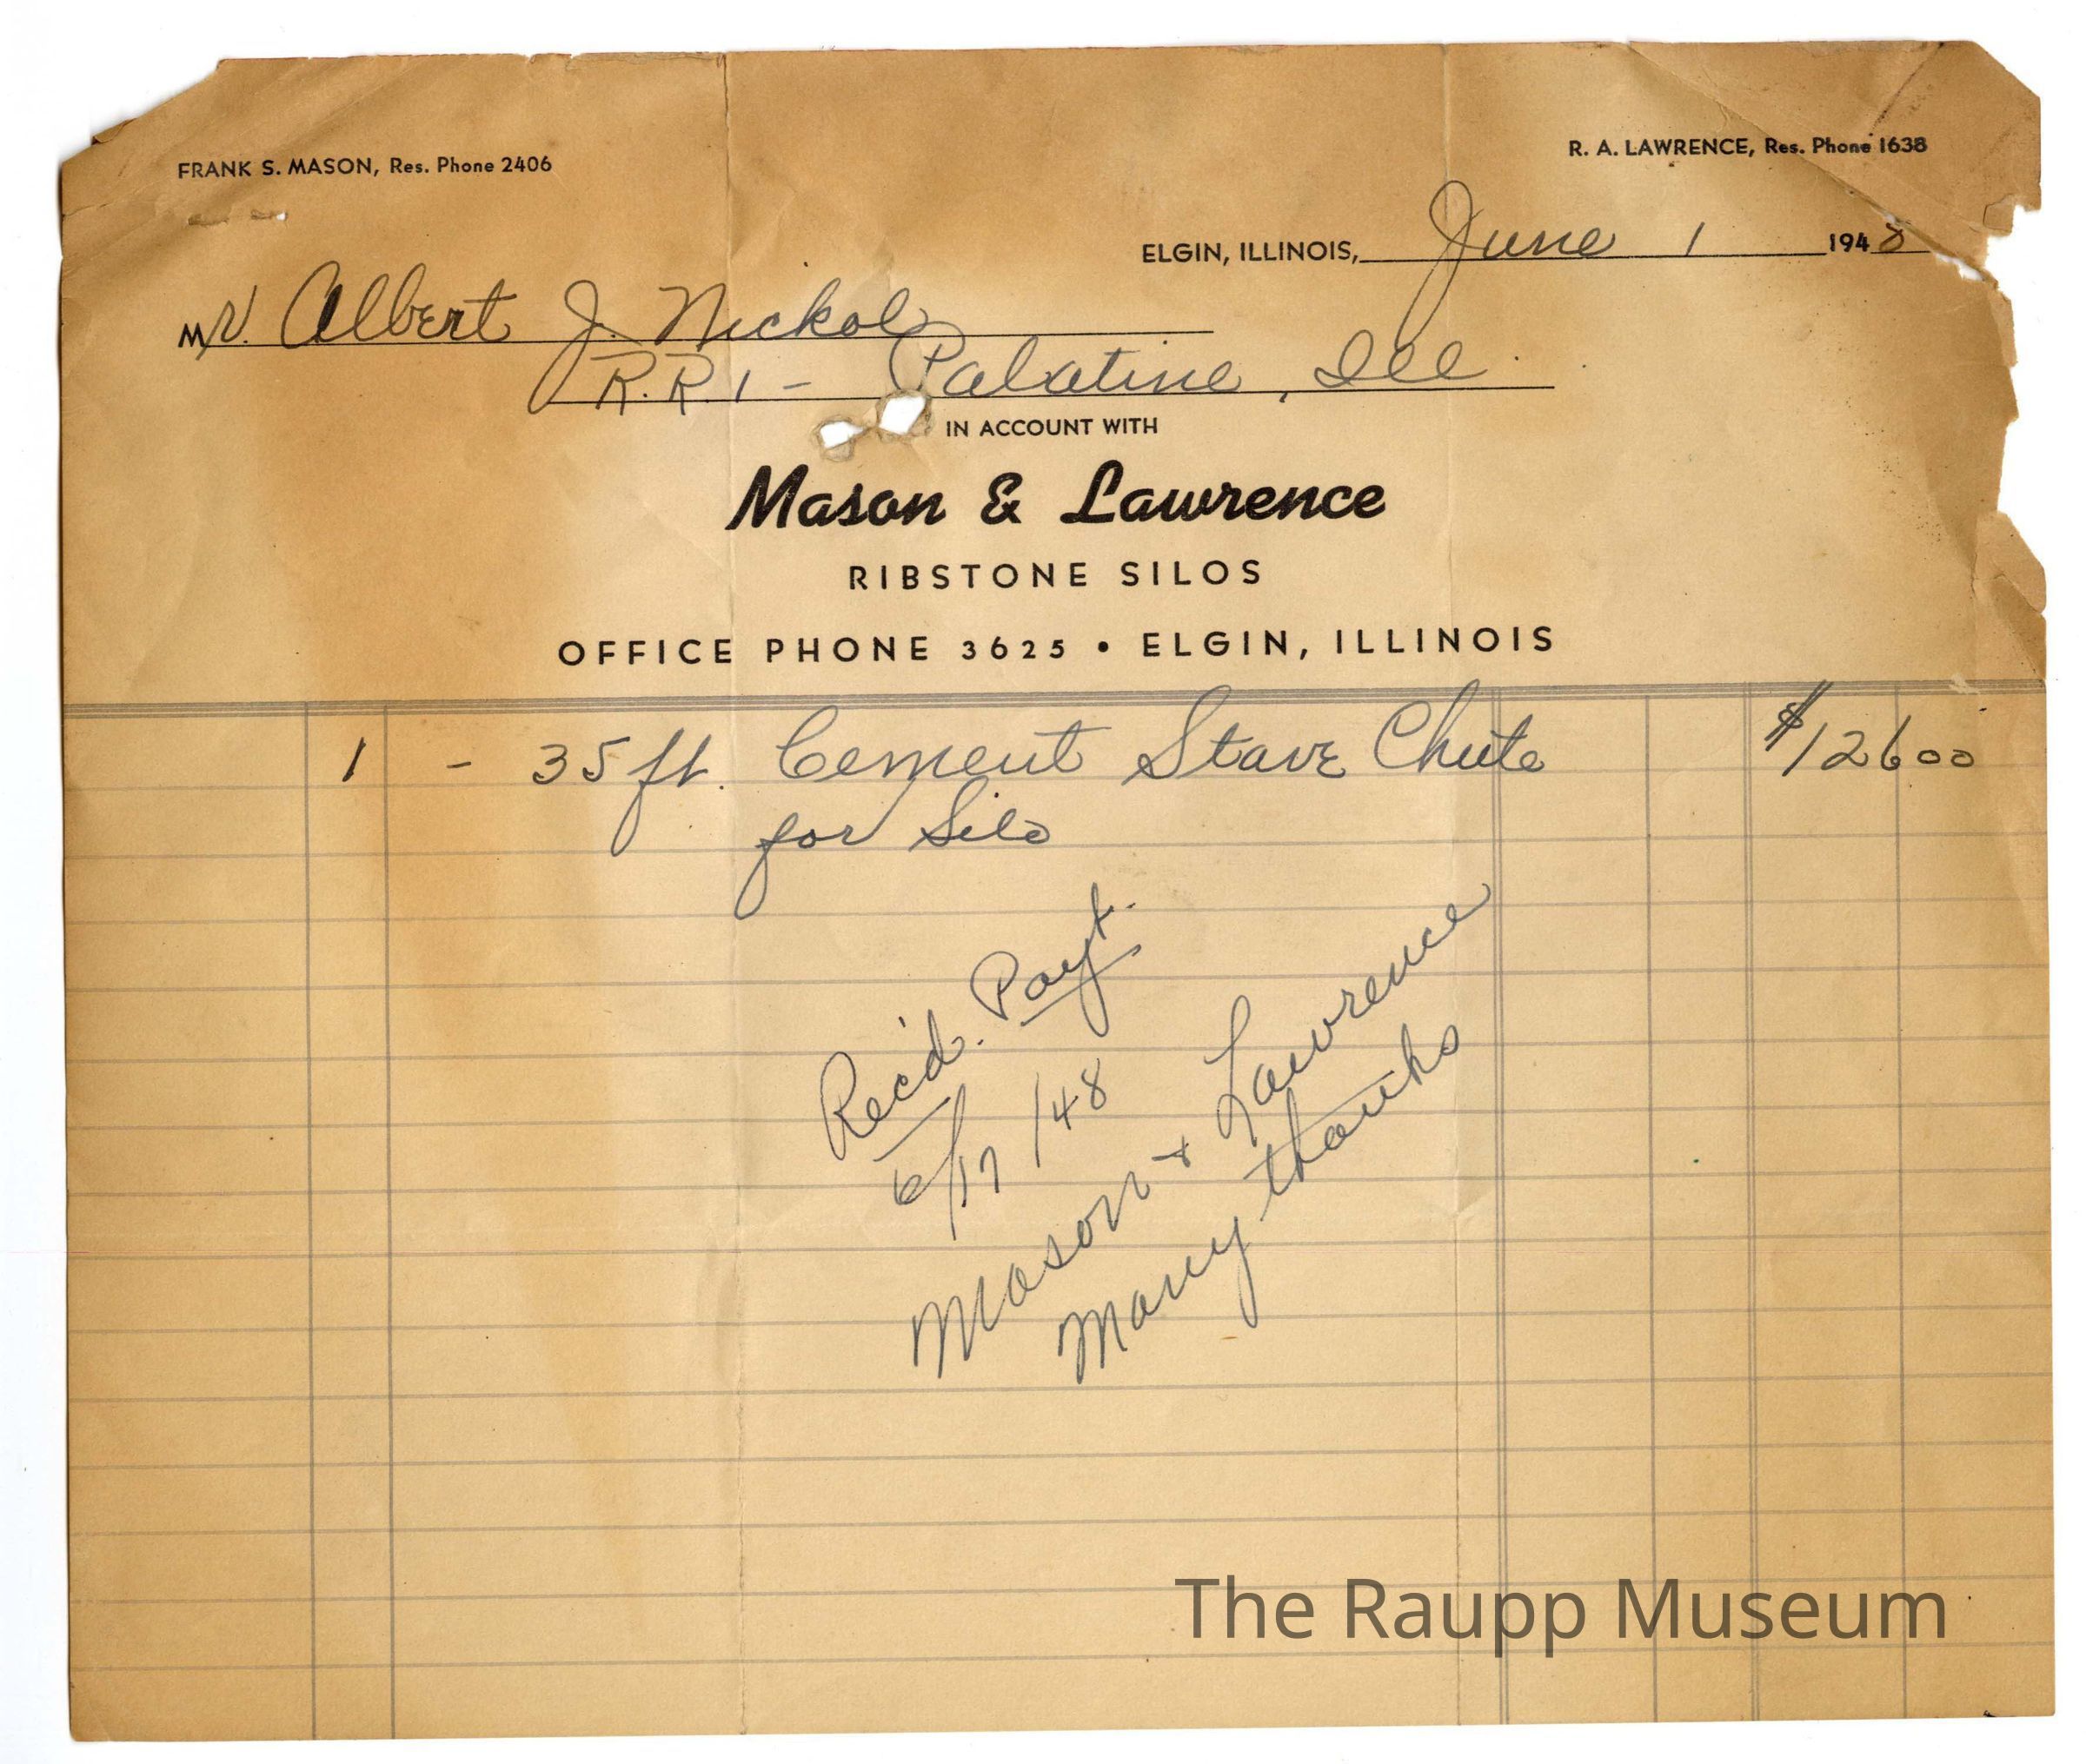 FRANK S. MASON, Res. Phone 2406
R. A. LAWRENCE, Res. Phone 1638
ELGIN, ILLINOIS, June 1 1948
Mr. Albert J. Nickol
R.R. 1 - Palatine, Ill
IN ACCOUNT WITH
Mason & Lawrence
RIBSTONE SILOS
OFFICE PHONE 3625 • ELGIN, ILLINOIS
1 - 35 ft. Cement Stave Chute $126 00
for Silo
Rec'd. Payt.
6/17/48
Mason & Lawrence
Many thanks
The Raupp Museum